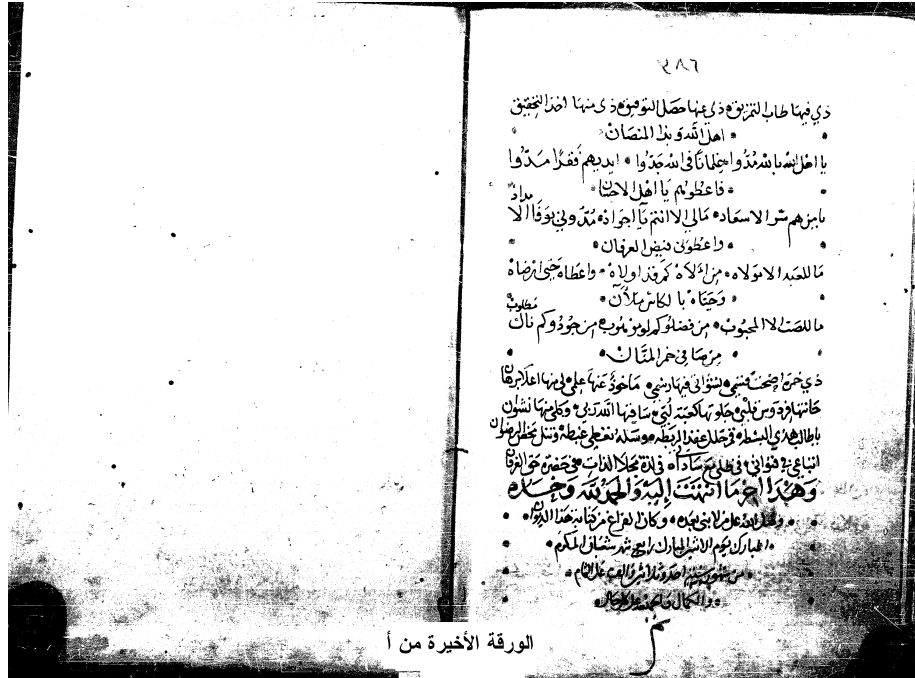 ٢٨٩
ذي فيها طاب التمزيق ذي عنها حصل التوفيق ذي منها اخذ التحقيق
اهل الله وبذا المنصان
يا اهل الله بالله مدوا غلمانا في الله جدوا ايديهم فقرا مدوا
فاعطوهم يا اهل الاحسان
يا من هم سر الاسعاد مالي الا انتم يا اجواد مدوني بوفا الامداد
واعطوني فيض العرفان
ما للعبد الا مولاه من الاه كم قد اولاه واعطاه حتى ارضاه
وحياه بالكاس ملآن
ما للصب الا المحبوب من فضلو كم لو موهوب من جودو كم ناك مطلوب
من صافي خمر المنان
ذي خمرة اضحت قسمي نشواني فيها رسمي ماخوذ عنها علمي لي منها اعلا برهان
حانتها فردوس قلبي جلوتها كعبة لبي ساقيها الله ربي وكلي منها نشوان
يا طالب هذي البسطه قم حلل عقد الربطه وسله تعطى غبطة وتنل محض الرضوان
في لذة مجلا الذات في حضرة حق الفرقان
وهذا آخر ما انتهت إليه والحمد لله وحده
وصلى الله على من لا نبي بعده وكان الفراغ من كتابة هذا الديوان
المبارك يوم الاثنين المبارك رابع شهر شعبان المكرم
من شهور سنة احد وثلاثين والف على التمام
والكمال والحمد لله على كل حال
م
الورقة الأخيرة من أ